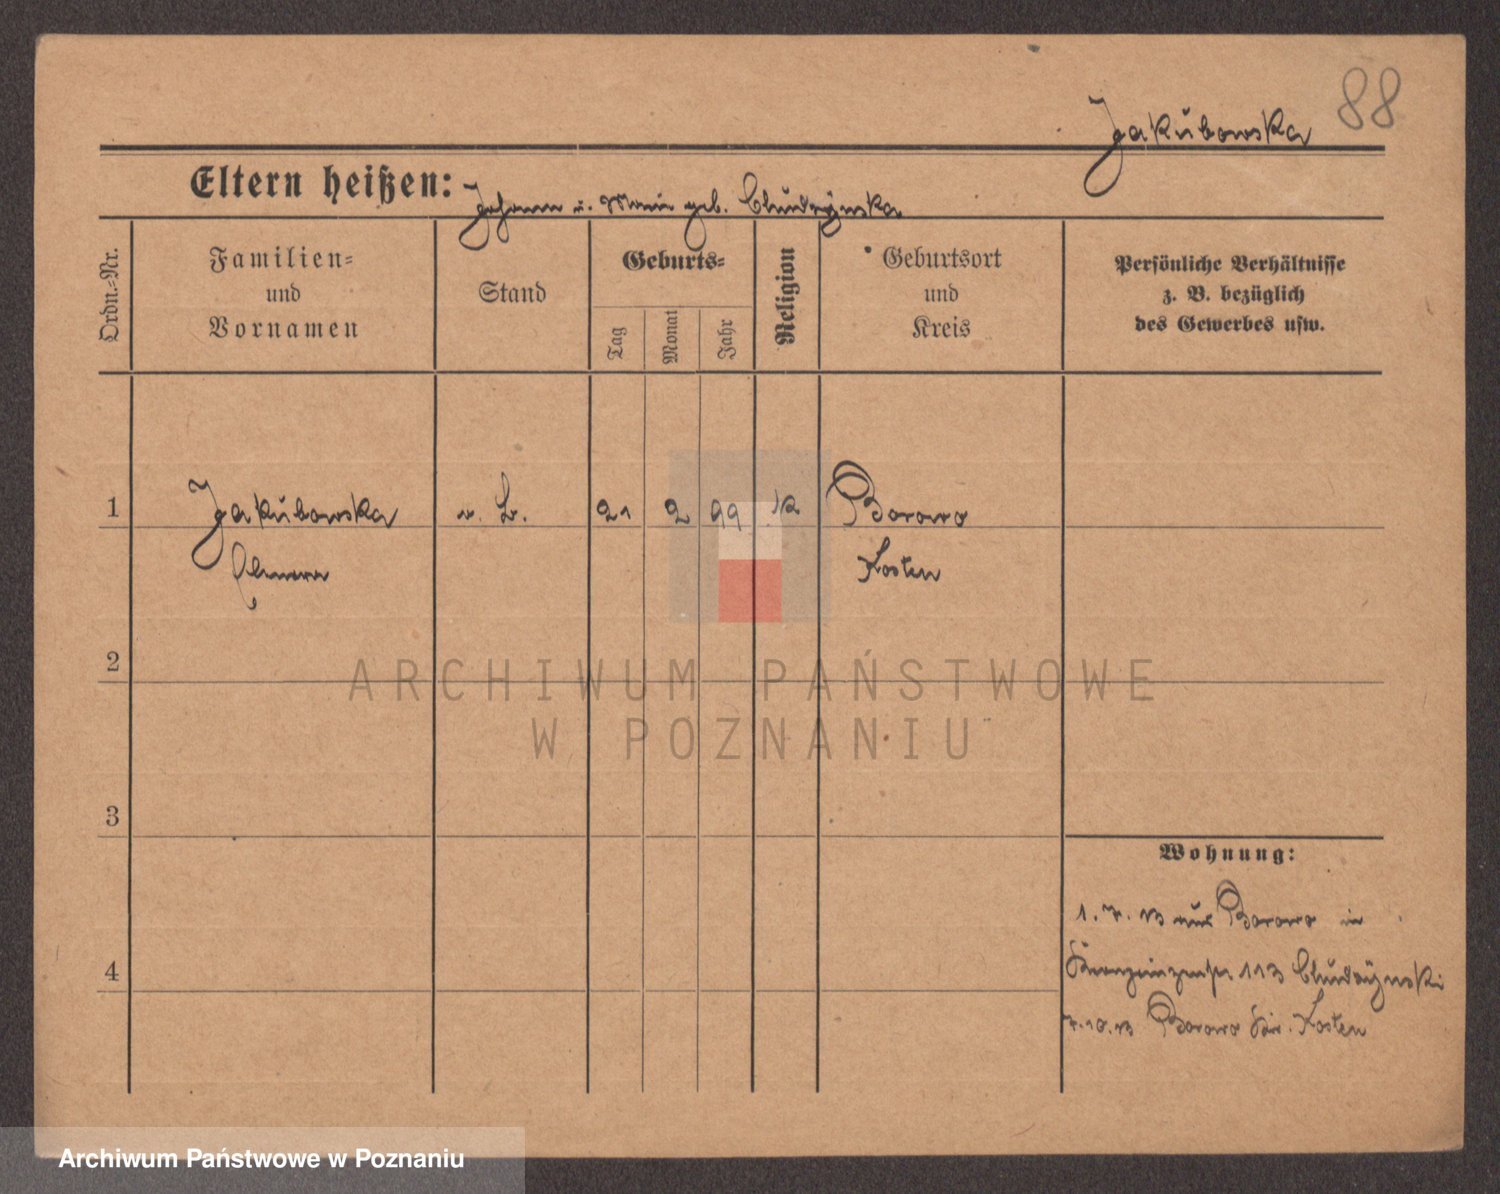 88
Jakubowska
Eltern heißen: Johann u. Marie geb. Chudzynska
Ordn.-Nr.
Familien-
und
Vornamen
Stand
Geburts-
Tag
Monat
Jahr
Religion
Geburtsort
und
Kreis
Persönliche Verhältnisse
z. B. bezüglich
des Gewerbes usw.
1 Jakubowska o. B. 21 2 99 K Borowo
Kosten
2
ARCHIWUM PAŃSTWOWE
W POZNANIU
3
Wohnung:
1. 7. 13 aus Borowo in
4
113 Chudzynski
7.10.13 Borowo Kr. Kosten
Archiwum Państwowe w Poznaniu